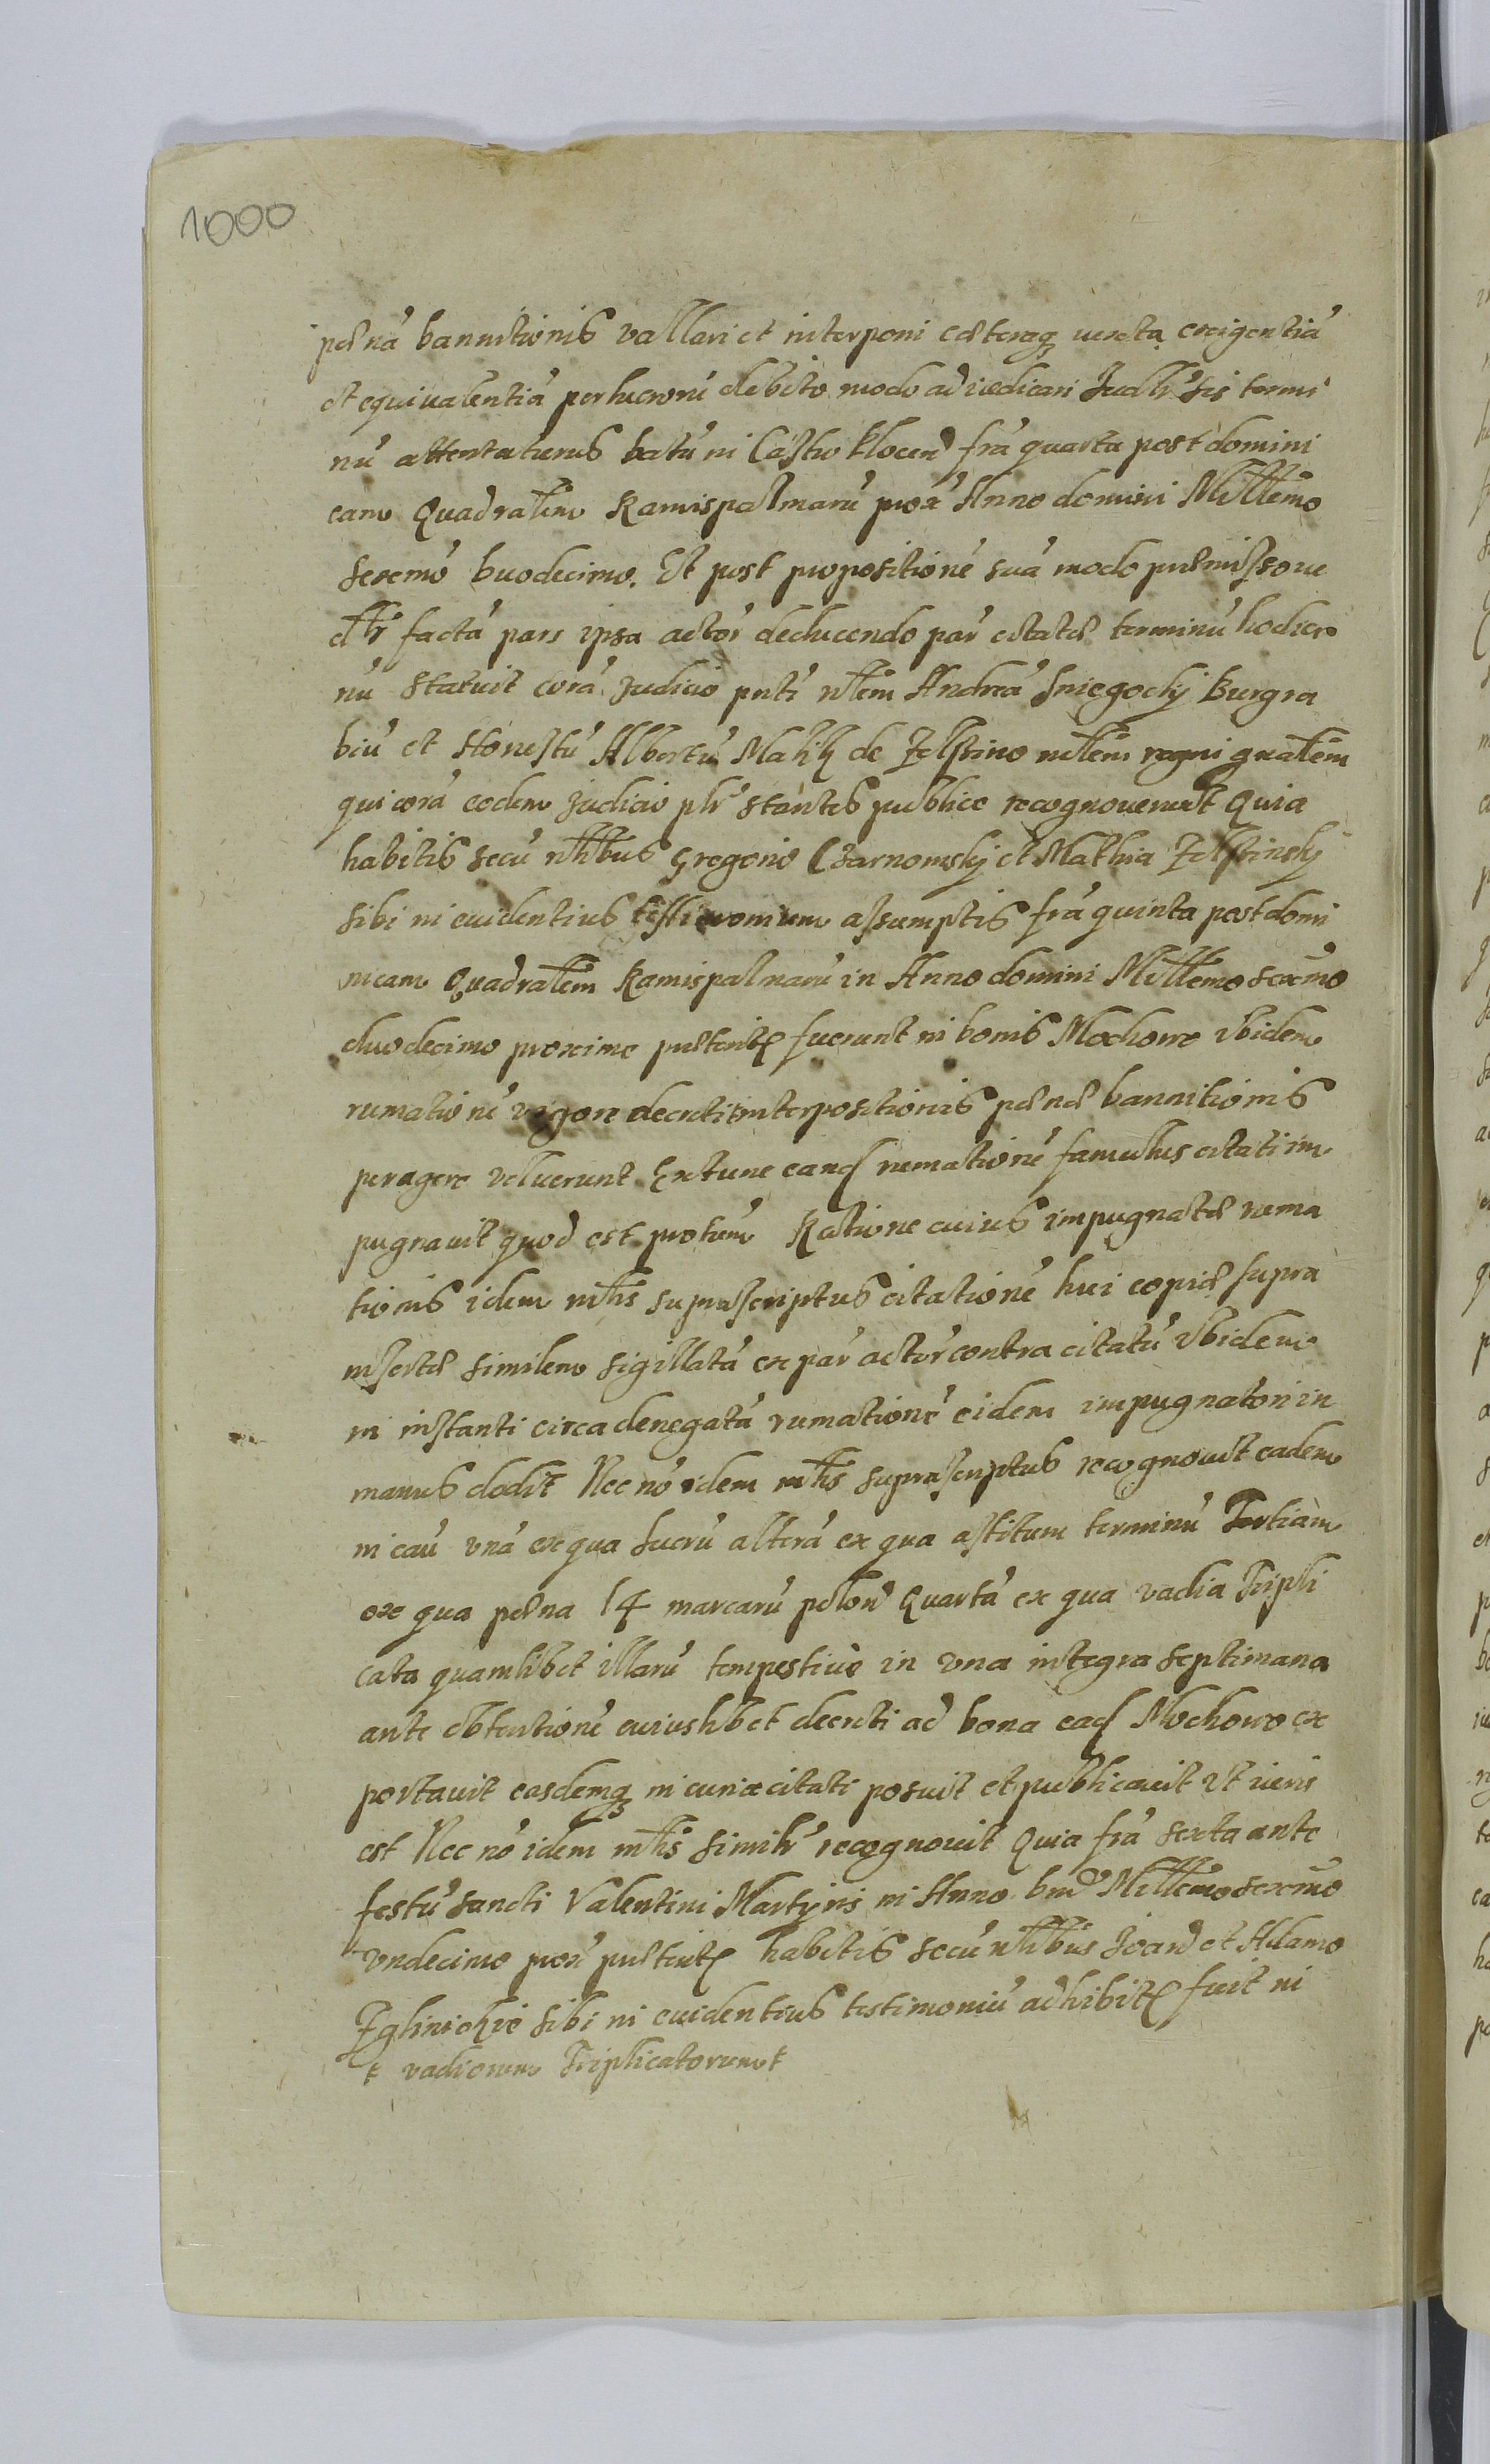 1000
pœná bannitionis vallari et interponi cæteraq iuxta exigentiá
et equivalentiá perlucrorú debito modo adiudicari Judlr Sis termi
nú attentaturus Datú in Castro Plocen fra quarta post domini
cam Quadralem Ramispalmarú prox Anno domini Millemo
sexcmo duodecimo. Et post propositioné suá modo præmisso ve
rbtr factá pars ipsa actor deducendo par citatæ terminú hodier
nú statuit corá Judicio pnti nlem Andreá Sniegocky Burgra
biú et Honestú Albertú Malik de Zelstino mlem regni gnalem
qui corá eodem judicio plr stantes publice recognoverunt Quia
habitis secú nlibus Gregorio Czarnomsky et Mathia Zelstinsky
sibi in evidentius testimonium assumptis fra quinta post domi
nicam Quadralem Ramispalmarú in Anno domini Millemo sexcmo
duodecimo proxime præterit fuerunt in bonis Mochowo Ibidem
rumationé vigore decreti interpositionis pœnæ bannitionis
peragere voluerunt Extunc eand rumationé famulus citati im
pugnavit quod est protum Ratione cuius impugnatæ ruma
tionis idem mlis suprascriptus citationé huic copiæ supra
insertæ similem sigillatá ex par actor contra citatú Ibidem
in instanti circa denegatá rumationé eidem impugnatori in
manus dedit Nec nó idem mlis suprascriptus recognovit eadem
in cau vná ex qua lucrú alterá ex qua astitum terminú Tertiam
ex qua pœna 14 marcarú polon Quartá ex qua vadia Tripli
cata quamlibet illarú tempestive in vna integra septimana
ante obtentioné cuiuslibet decreti ad bona ead Mochowo ex
portavit easdemq in curia citati posuit et publicavit Vt iuris
est Nec nó idem mlis similr recognovit Quia fra sexta ante
festú sancti Valentini Martyris in Anno dni Millemo sexcmo
vndecimo prox præterit habitis secú nlibus Joan et Adamo
Zglinickie sibi in evidentius testimoniú adhibit fuit in
ŧ vadiorum Triplicatorum ŧ